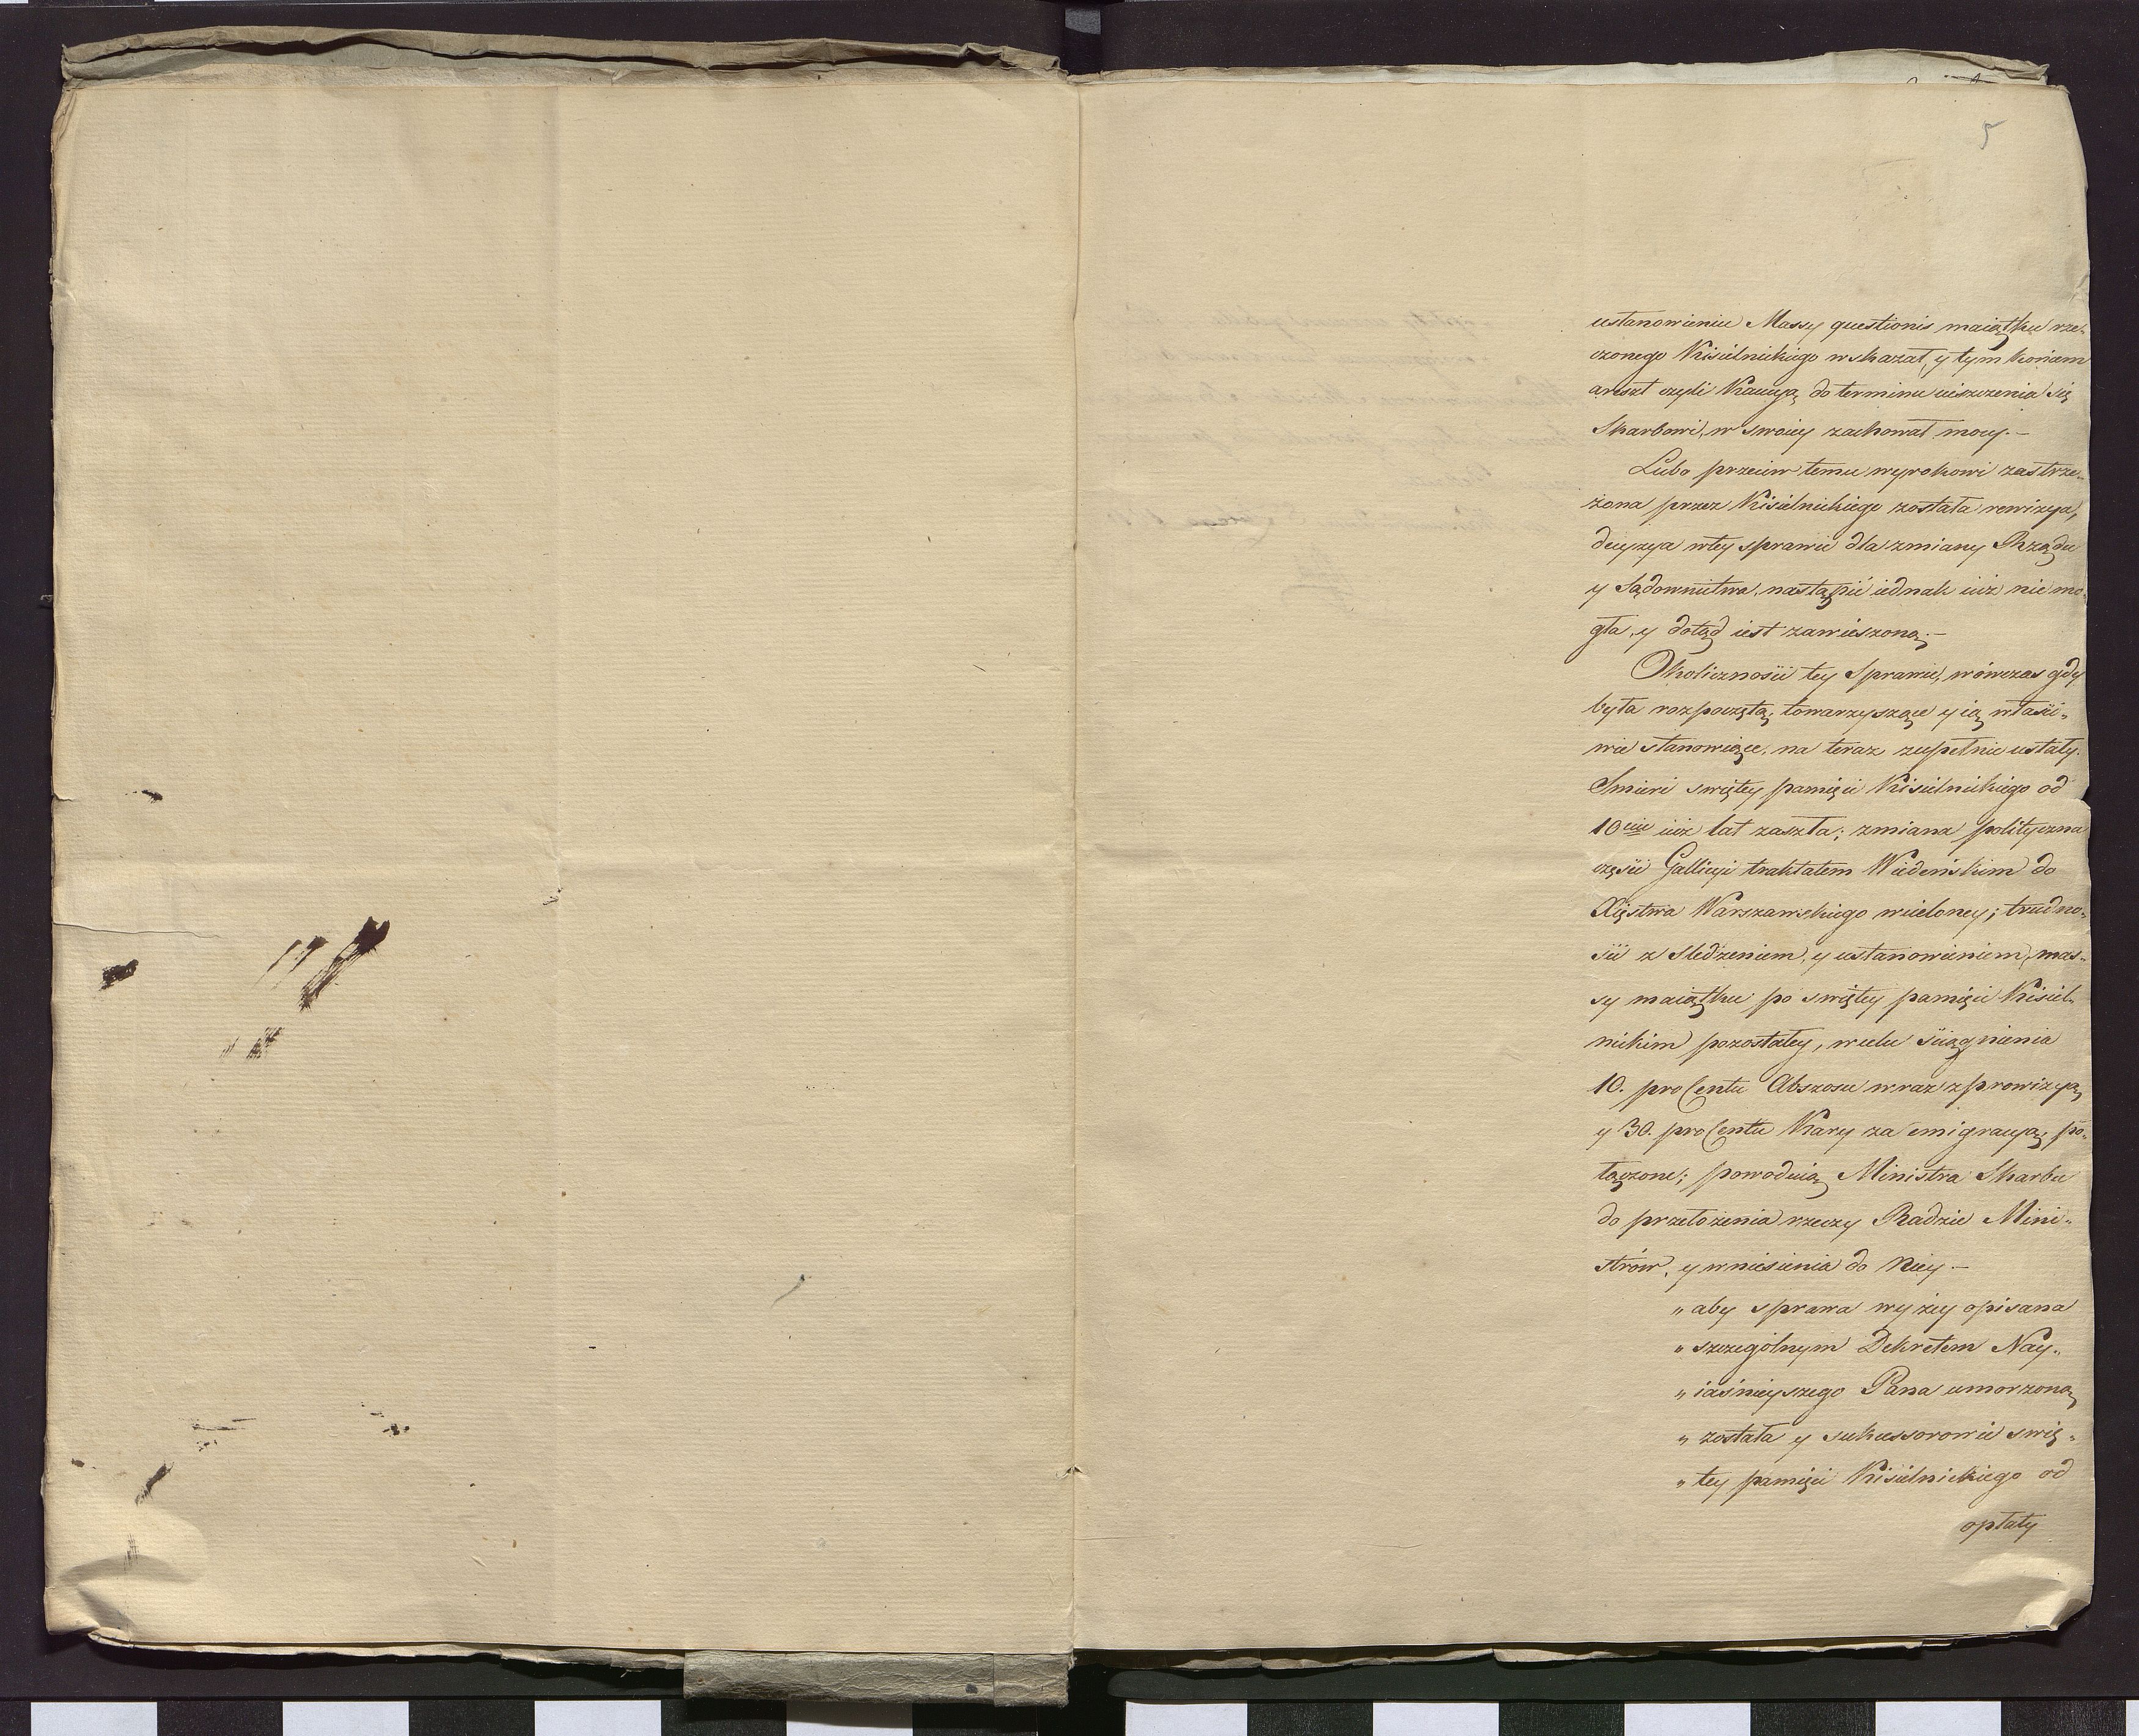 5
ustanowieniu Massy questionis maiątku rze„
czonego Kisielnickiego wskazał, y tym końcem
areszt czyli Kaucyą do terminu uiszczenia się
Skarbowi, w swoiey zachował mocy.–
Lubo przeciw temu wyrokowi zastrze„
żona przez Kisielnickiego została rewizya,
decyzya w tey sprawie dla zmiany Rządu
y Sądownictwa, nastąpić iednak iuż nie mo„
gła, y dotąd iest zawieszoną.–
Okoliczności tey Sprawie, wówczas gdy
była rozpoczętą, towarzyszące y ią właści„
wie stanowiące, na teraz zupełnie ustały.
Smierć swiętey pamięci Kisielnickiego od
10ciu iuż lat zaszła; zmiana polityczna
części Gallicyi traktatem Wiedeńskim do
Xięstwa Warszawskiego wcieloney; trudno„
ści z sledzeniem, y ustanowieniem, mas„
sy maiątku po swiętey pamięci Kisiel„
nickim pozostałey, w celu ściągnienia
10. proCentu Abszosu wraz z prowizyą
y 30. proCentu Kary za emigracyą po„
łączone; powoduią Ministra Skarbu
do przełożenia rzeczy Radzie Mini„
strów, y wniesienia do Niey –
„ aby sprawa wyżey opisana
„ szczególnym Dekretem Nay„
„ iaśnieyszego Pana umorzoną
„ została y sukcessorowie swię„
„ tey pamięci Kisielnickiego od
opłaty